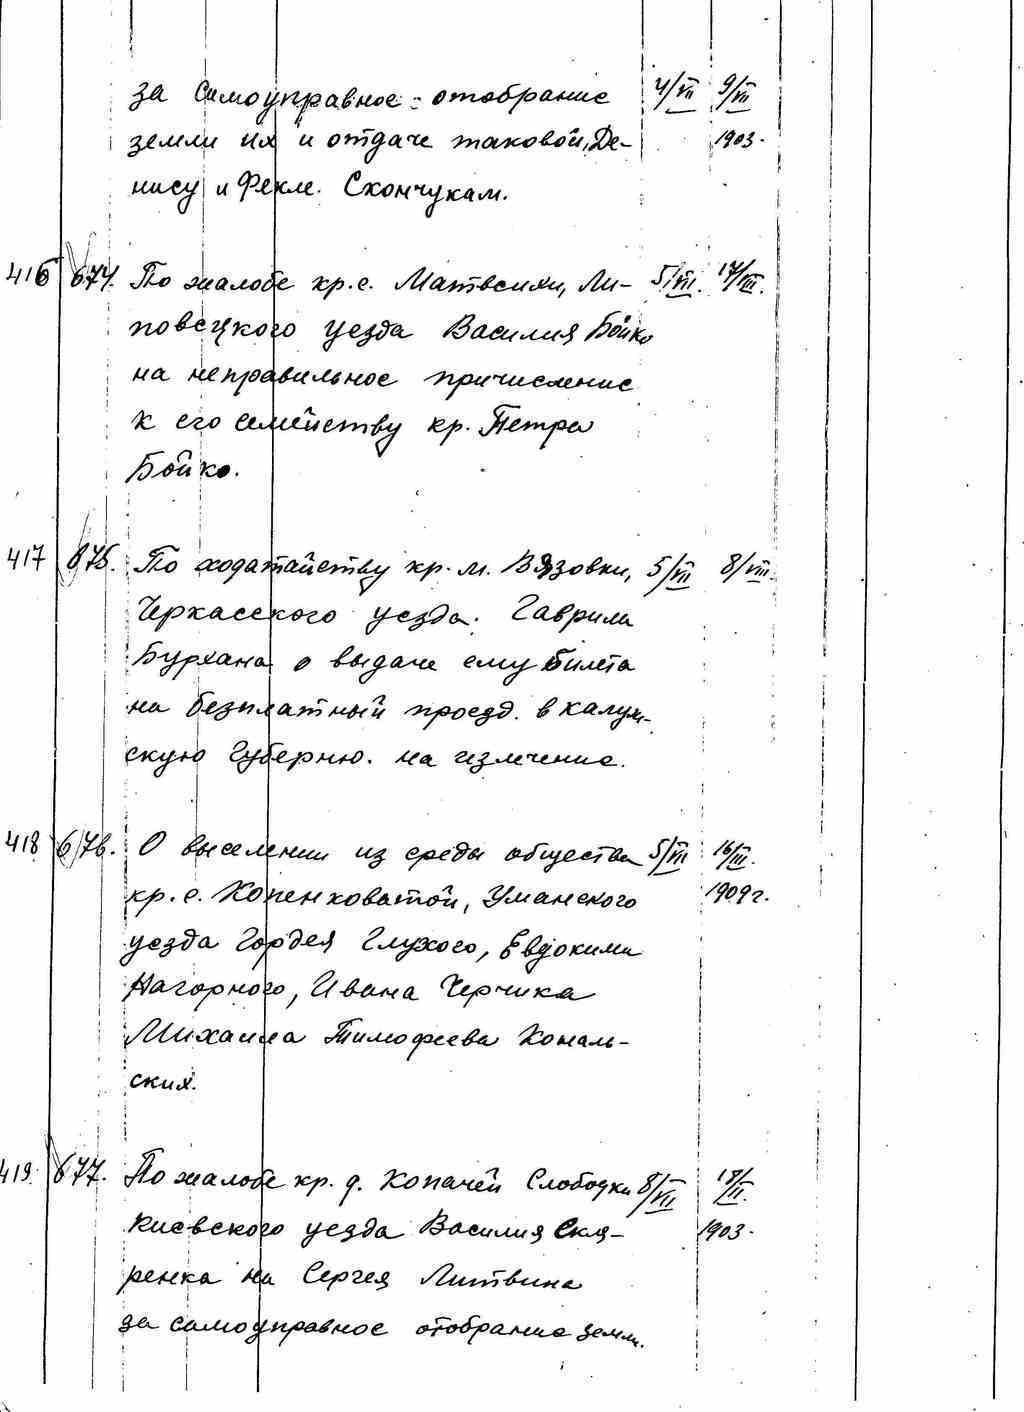 за самоуправное отобрание 4/VII 9/VII
земли их и отдаче таковой, Де- 1903.
нису и Фекле. Скончукам.
416 674. По жалобе кр.с. Матвсихи, Ли- 5/VII. 17/VIII.
повецкого уезда Василия Бойко
на неправильное причисление
к его семейству кр. Петра
Бойко.
417 675. По ходатайству кр. м. Вязовки, 5/VII 8/VIII.
Черкасского уезда. Гаврила
Бурхана о выдаче ему билета
на безплатный проезд. в Калуж-
скую губерню. на излечение.
418 676. О выселении из среды общества 5/VII 16/III.
кр.с. Копенковатой, Уманского 1909г.
уезда Гордея Глухого, Евдокима
Нагорного, Ивана Черчика
Михаила Тимофеева Кональ-
ских.
419. 677. По жалобе кр. д. Копачей Слободки 8/VII 18/II.
Киевского уезда Василия Скля- 1903.
ренка на Сергея Литвина
за самоуправное отобрание земли.